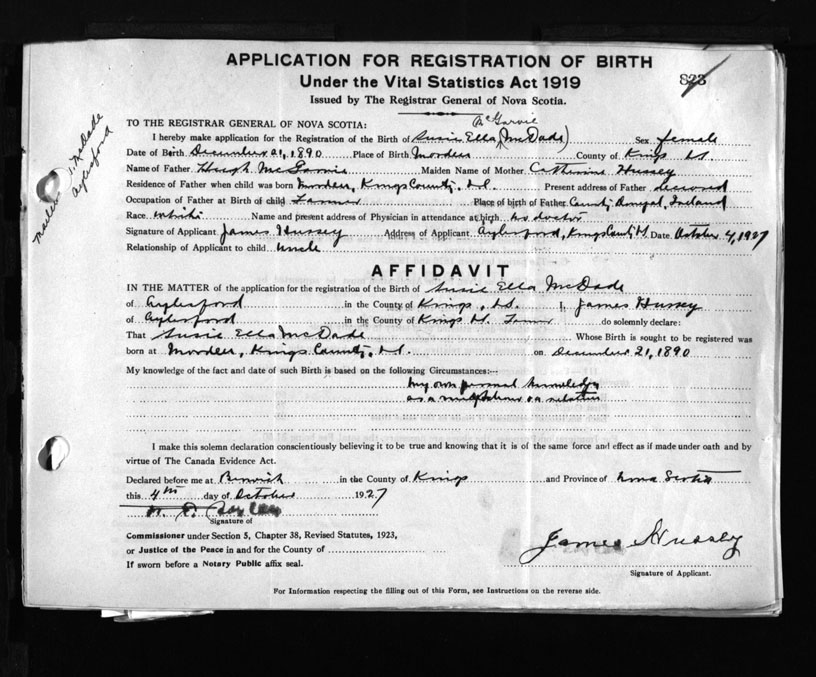 APPLICATION FOR REGISTRATION OF BIRTH
Under the Vital Statistics Act 1919
823
Issued by The Registrar General of Nova Scotia.
Mc Garvie
TO THE REGISTRAR GENERAL OF NOVA SCOTIA:
I hereby make application for the Registration of the Birth of Susie Ella (McDade) Sex female
Date of Birth December 21, 1890 Place of Birth Morden County of Kings N.S.
Name of Father Hugh McGarvie Maiden Name of Mother Catherine Hussey
Residence of Father when child was born Morden, Kings County, N.S. Present address of Father deceased
Occupation of Father at Birth of child Farmer Place of birth of Father County Donegal, Ireland
Race white Name and present address of Physician in attendance at birth no doctor
Signature of Applicant James Hussey Address of Applicant Aylesford, Kings County N.S. Date October 4, 1927
Relationship of Applicant to child uncle
McDade
Aylesford
AFFIDAVIT
IN THE MATTER of the application for the registration of the Birth of Susie Ella McDade
of Aylesford in the County of Kings, N.S. I, James Hussey
of Aylesford in the County of Kings N.S. Farmer do solemnly declare:
That Susie Ella McDade Whose Birth is sought to be registered was
born at Morden, Kings County, N.S. on December 21, 1890
My knowledge of the fact and date of such Birth is based on the following Circumstances:—
My own personal knowledge
as a neighbour or relative
I make this solemn declaration conscientiously believing it to be true and knowing that it is of the same force and effect as if made under oath and by
virtue of The Canada Evidence Act.
Declared before me at Berwick in the County of Kings and Province of Nova Scotia
this 4th day of October 1927
Signature of
Commissioner under Section 5, Chapter 38, Revised Statutes, 1923,
or Justice of the Peace in and for the County of
If sworn before a Notary Public affix seal.
James Hussey
Signature of Applicant.
For Information respecting the filling out of this Form, see Instructions on the reverse side.